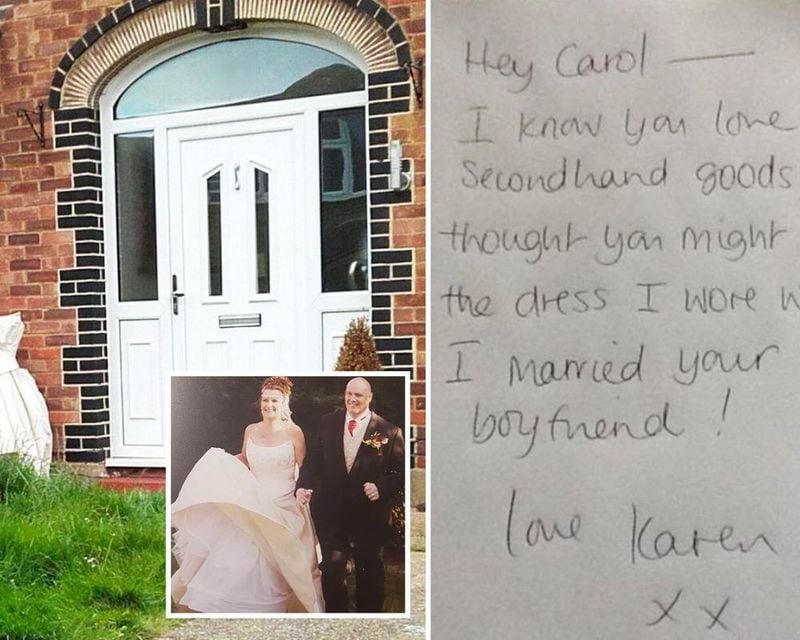 Hey Carol —
I know you love
secondhand goods
thought you might
the dress I wore
I married your
boyfriend!
love Karen
xx